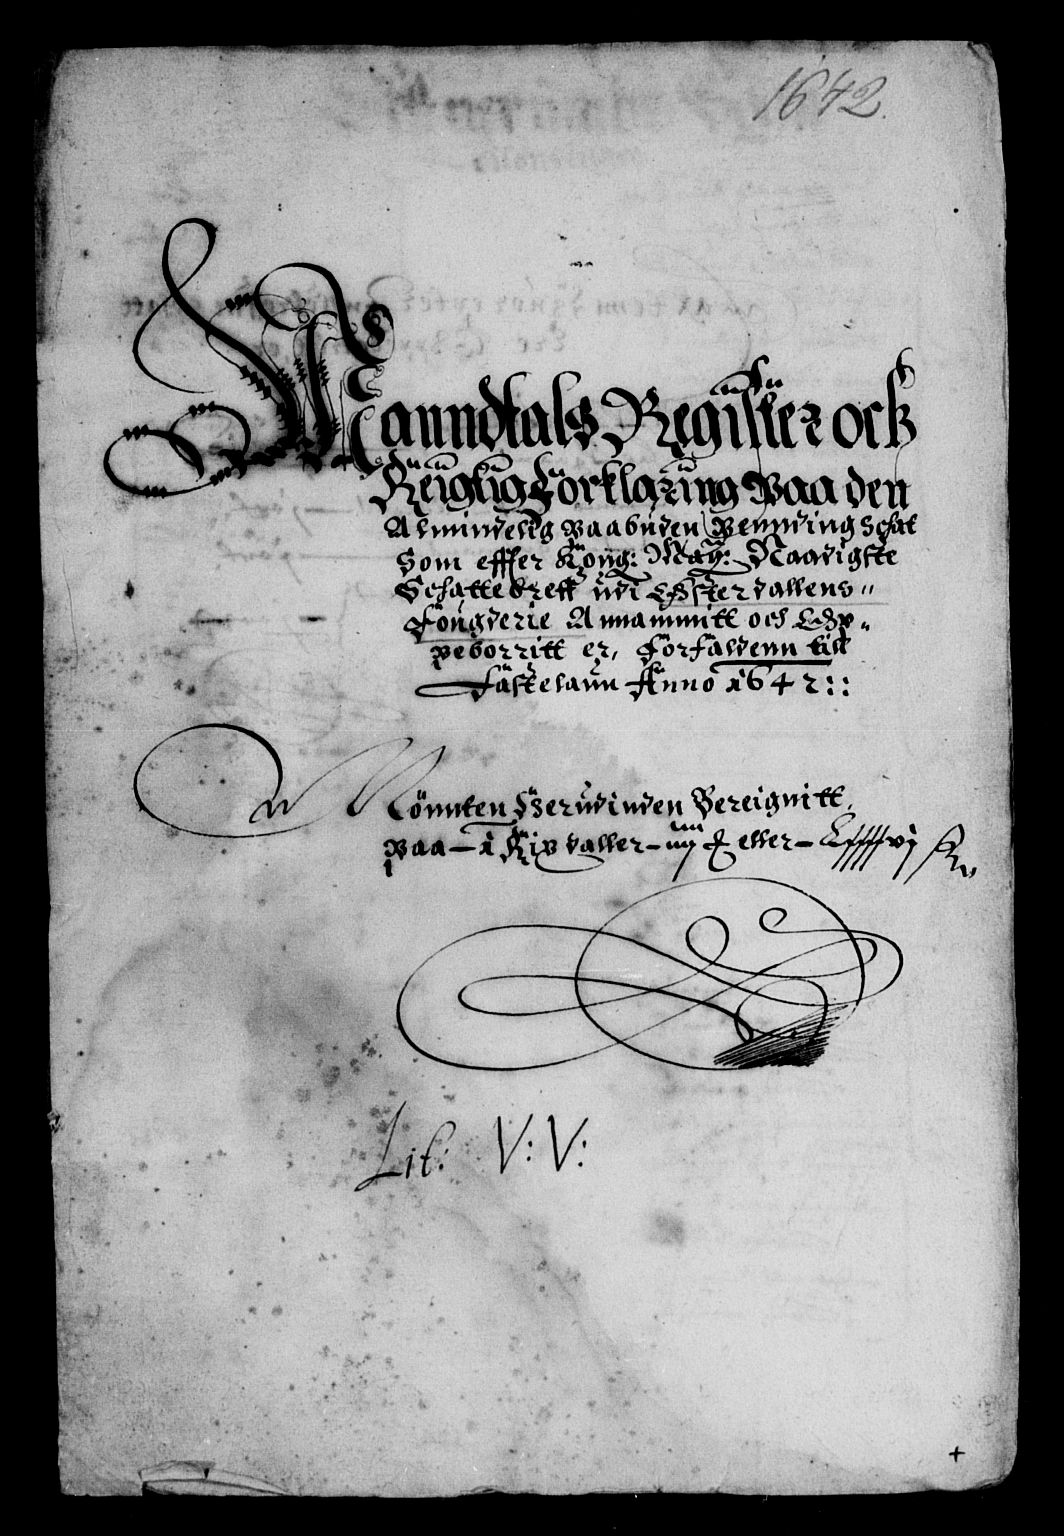 1642.
Manndtals Register och
Reigtig Forklaring Paa den
Almindelig Paabuden Pennding Schat
Som effter Kong: May: Naadigste
Schattebreff udi Østerdallens
Fougderie Annammitt och Op„
peborritt er, Forfaldenn till
Fastelaun Anno 1642::
Mönnten Herudinden Bereignitt
Paa – 1 Rix daller – iiij eller –
Lit: V: V: